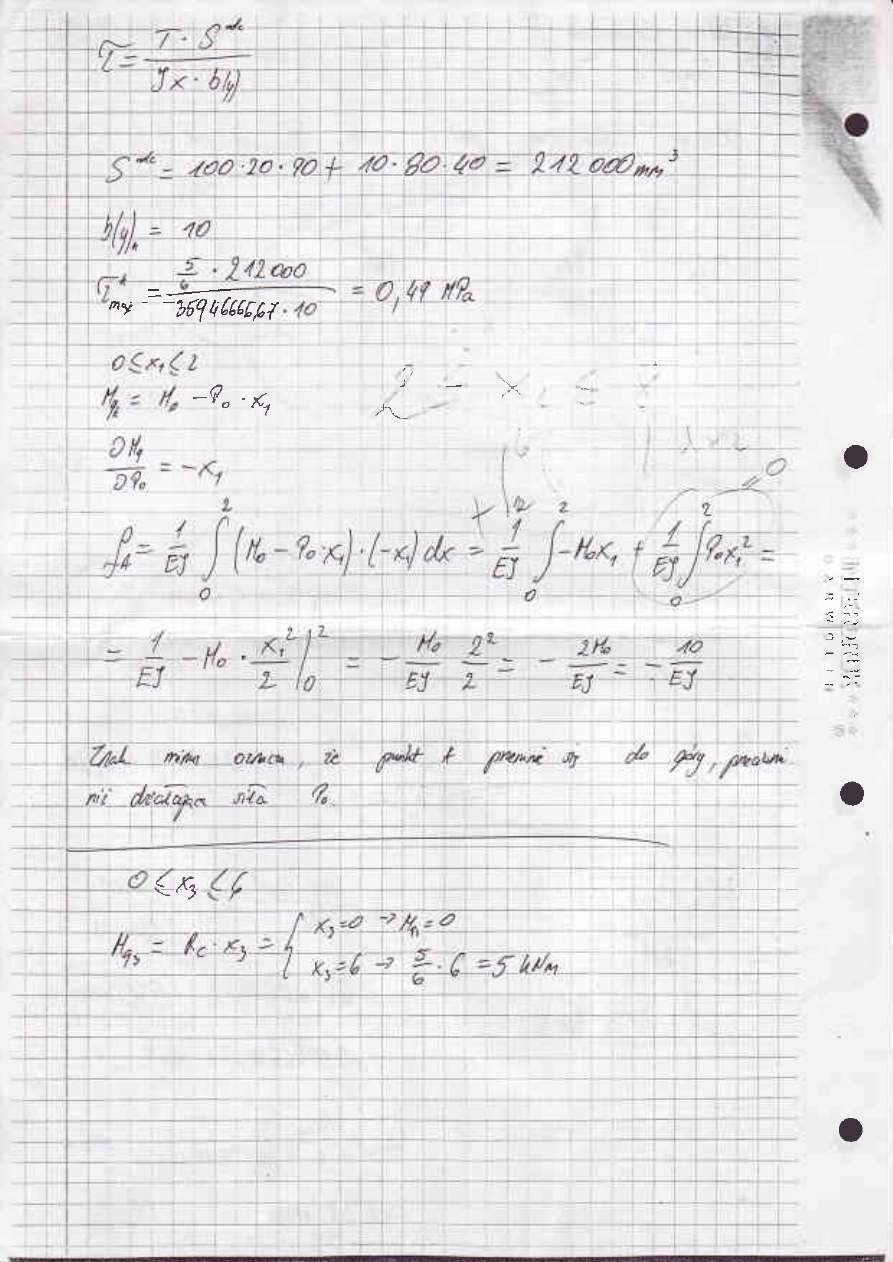 τ = T · S^odc / Jx · b(y)
S^odc = 100·20·90 + 10·80·40 = 212 000 mm³
b(y) = 10
τ max = 5/6 · 212000 / 35946666,67 · 10 = 0,49 MPa
0 ≤ x₁ ≤ 2
2 ≤ x₂ ≤
Mg = M₀ − P₀ · x₁
∂Mg / ∂P₀ = − x₁
= 0
f_A^P = 1/EJ ∫₀² (M₀ − P₀·x₁)·(−x₁) dx = 1/EJ ∫₀² −M₀x₁ + 1/EJ ∫₀² P₀x₁² =
= 1/EJ − M₀ · x₁²/2 |₀² = − M₀/EJ 2²/2 = − 2M₀/EJ = − 10/EJ
Znak minus oznacza, że punkt A przesunie się do góry, przeciwnie
niż działająca siła P₀
0 ≤ x₃ ≤ 6
Mg₃ = Rc · x₃ = { x₃=0 → Mg=0
x₃=6 → 5/6 · 6 = 5 kNm